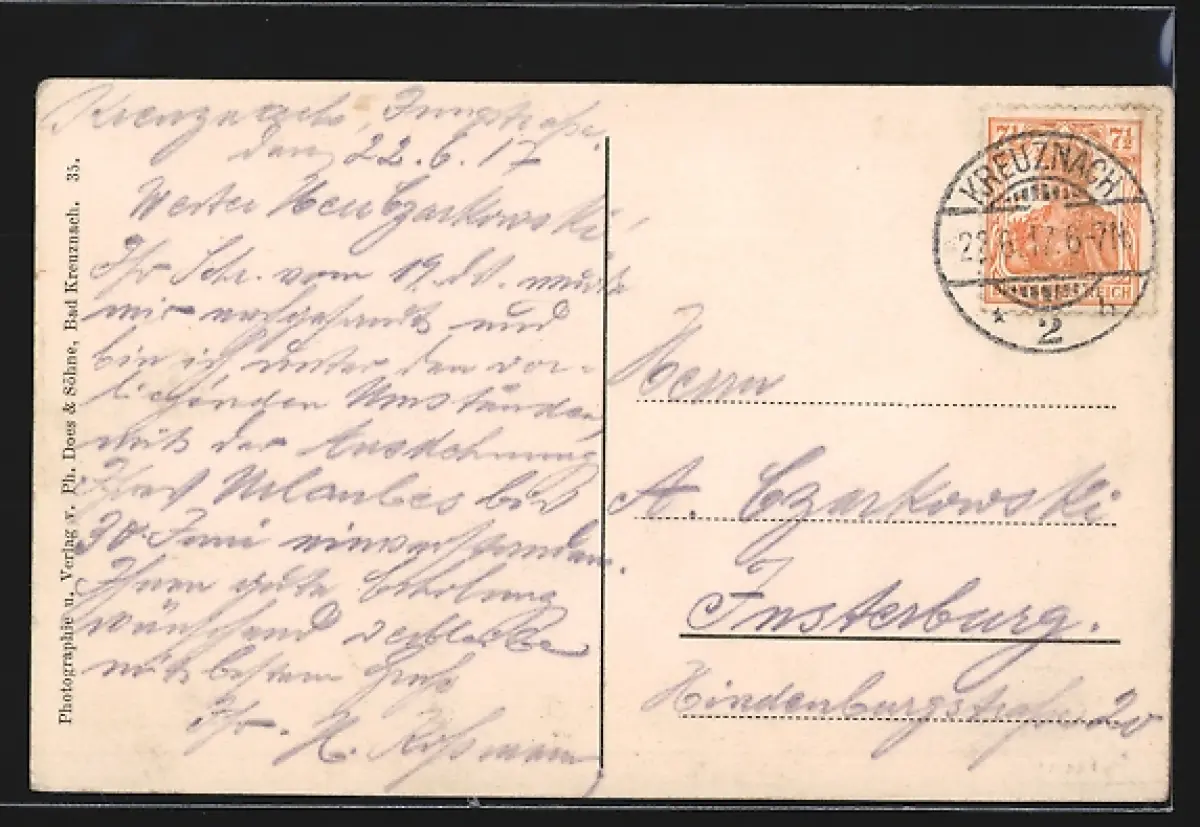 Kreuznach, Jungstraße,
den 22.6.17
Werter Herr Czarkowski!
Ihr Schr. vom 19. ds. wurde
mir nachgesandt und
bin ich unter den vor-
liegenden Umständen
mit der Ausdehnung
Ihres Urlaubes bis
30 Juni einverstanden.
Ihnen gute Erholung
wünschend verbleibe
mit bestem Gruß
Ihr. H. Roßmann
Photographie u. Verlag v. Ph. Does & Söhne, Bad Kreuznach. 35.
7½ 7½
KREUZNACH
6-7N
* 2 b
REICH
Herrn
A. Czarkowski
Insterburg.
Hindenburgstraße 20